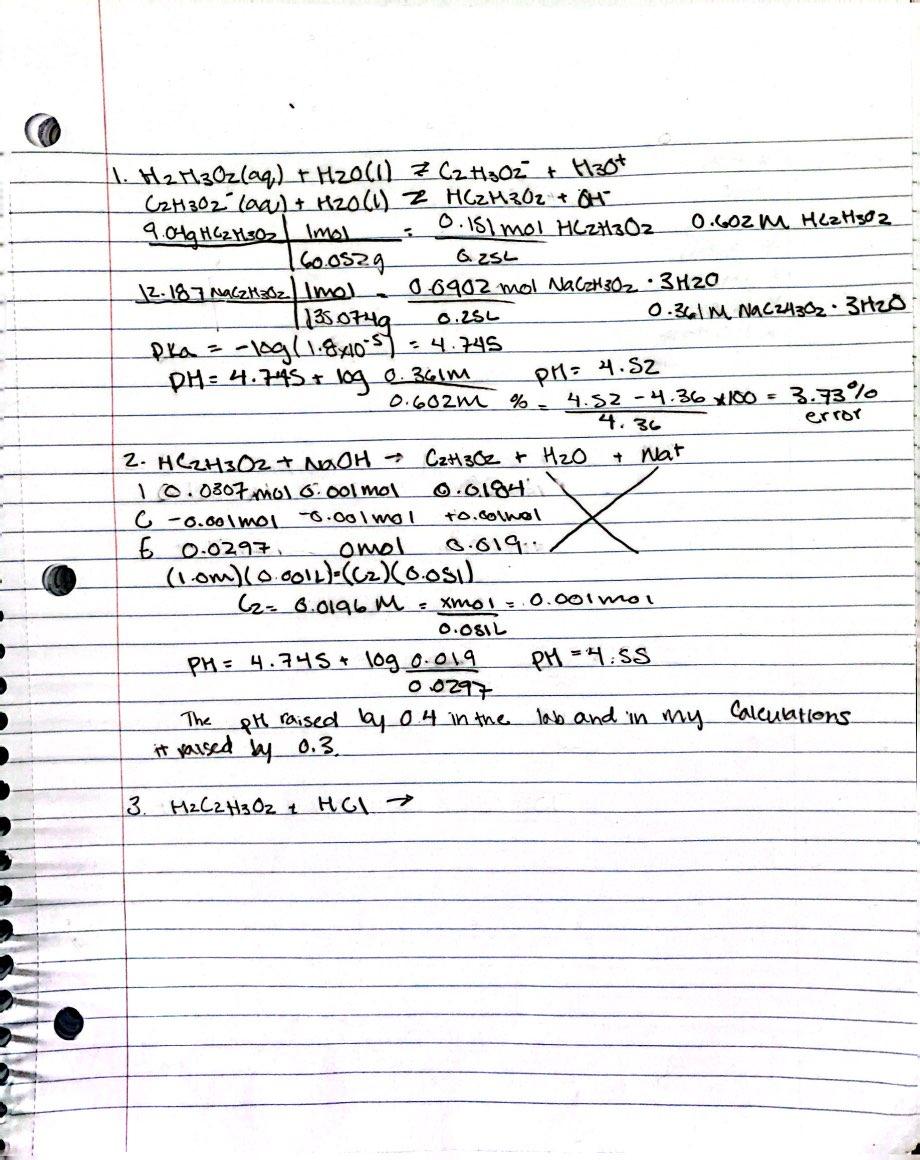 1. H2H3O2(aq) + H2O(l) ⇌ C2H3O2⁻ + H3O⁺
C2H3O2⁻(aq) + H2O(l) ⇌ HC2H3O2 + OH⁻
9.04g HC2H3O2 | 1mol = 0.151 mol HC2H3O2 0.602 M HC2H3O2
60.052g 0.25L
12.187 NaC2H3O2 | 1mol = 0.0902 mol NaC2H3O2 · 3H2O
135.074g 0.25L 0.361M NaC2H3O2 · 3H2O
pKa = -log(1.8x10⁻⁵) = 4.745
pH = 4.745 + log 0.361M pH = 4.52
0.602M % = 4.52 - 4.36 x100 = 3.73%
4.36 error
2. HC2H3O2 + NaOH → C2H3O2 + H2O + Na+
I 0.0307 mol 0.001mol 0.0184
C -0.001mol -0.001mol +0.001mol
E 0.0297. 0mol 0.019..
(1.0m)(0.001L)=(C2)(0.051)
C2 = 0.0196 M = xmol = 0.001mol
0.051L
pH = 4.745 + log 0.019 pH = 4.55
0.0297
The pH raised by 0.4 in the lab and in my calculations
it raised by 0.3.
3. H2C2H3O2 + HCl →